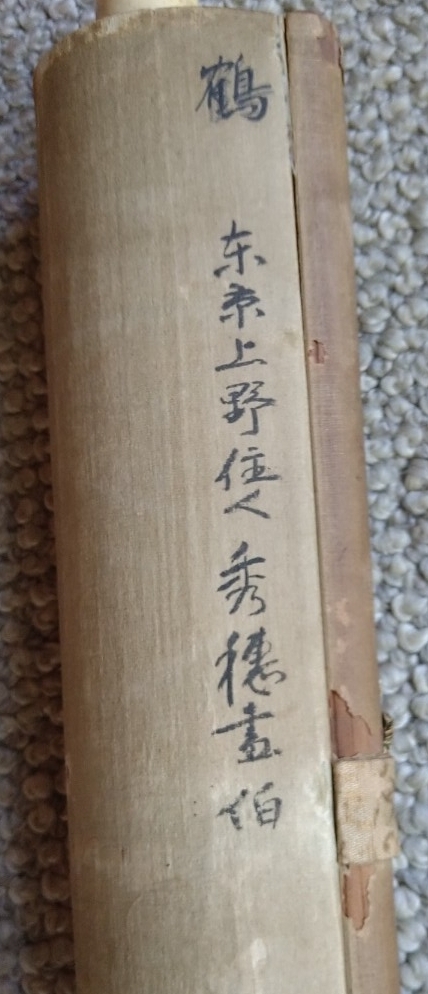 鶴
东京上野住人秀穗畫伯